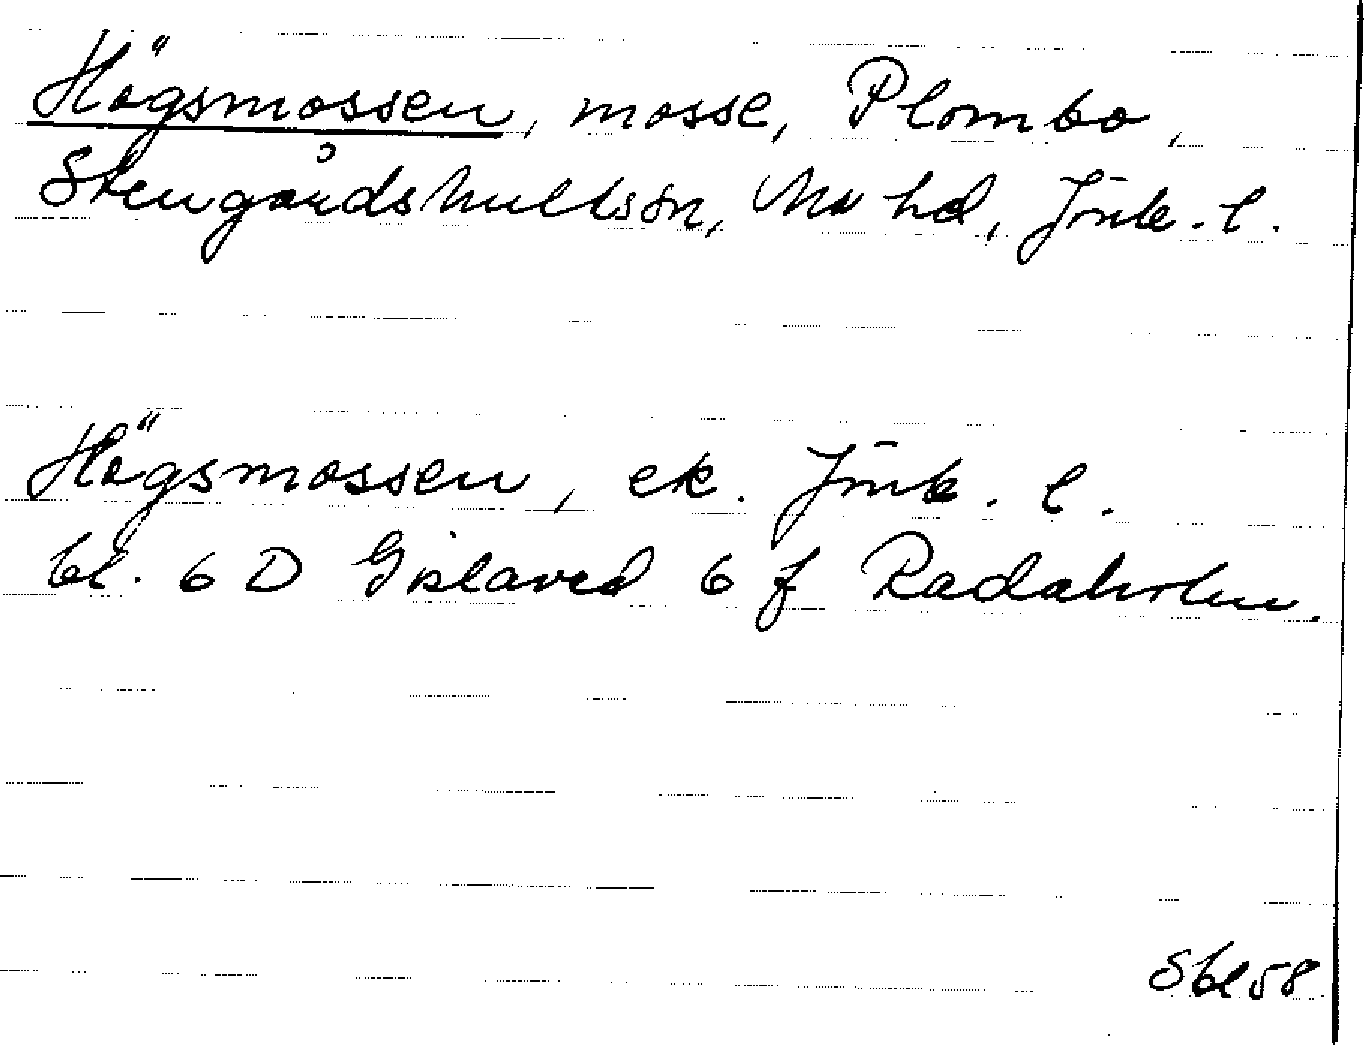 Högsmossen, mosse, Plombo,
Stengårdshultssn, Mo hd, Jönk. l.
Högsmossen, ek. Jönk. l.
bl. 6 D Gislaved 6 f Radaholm.
Sbl 58